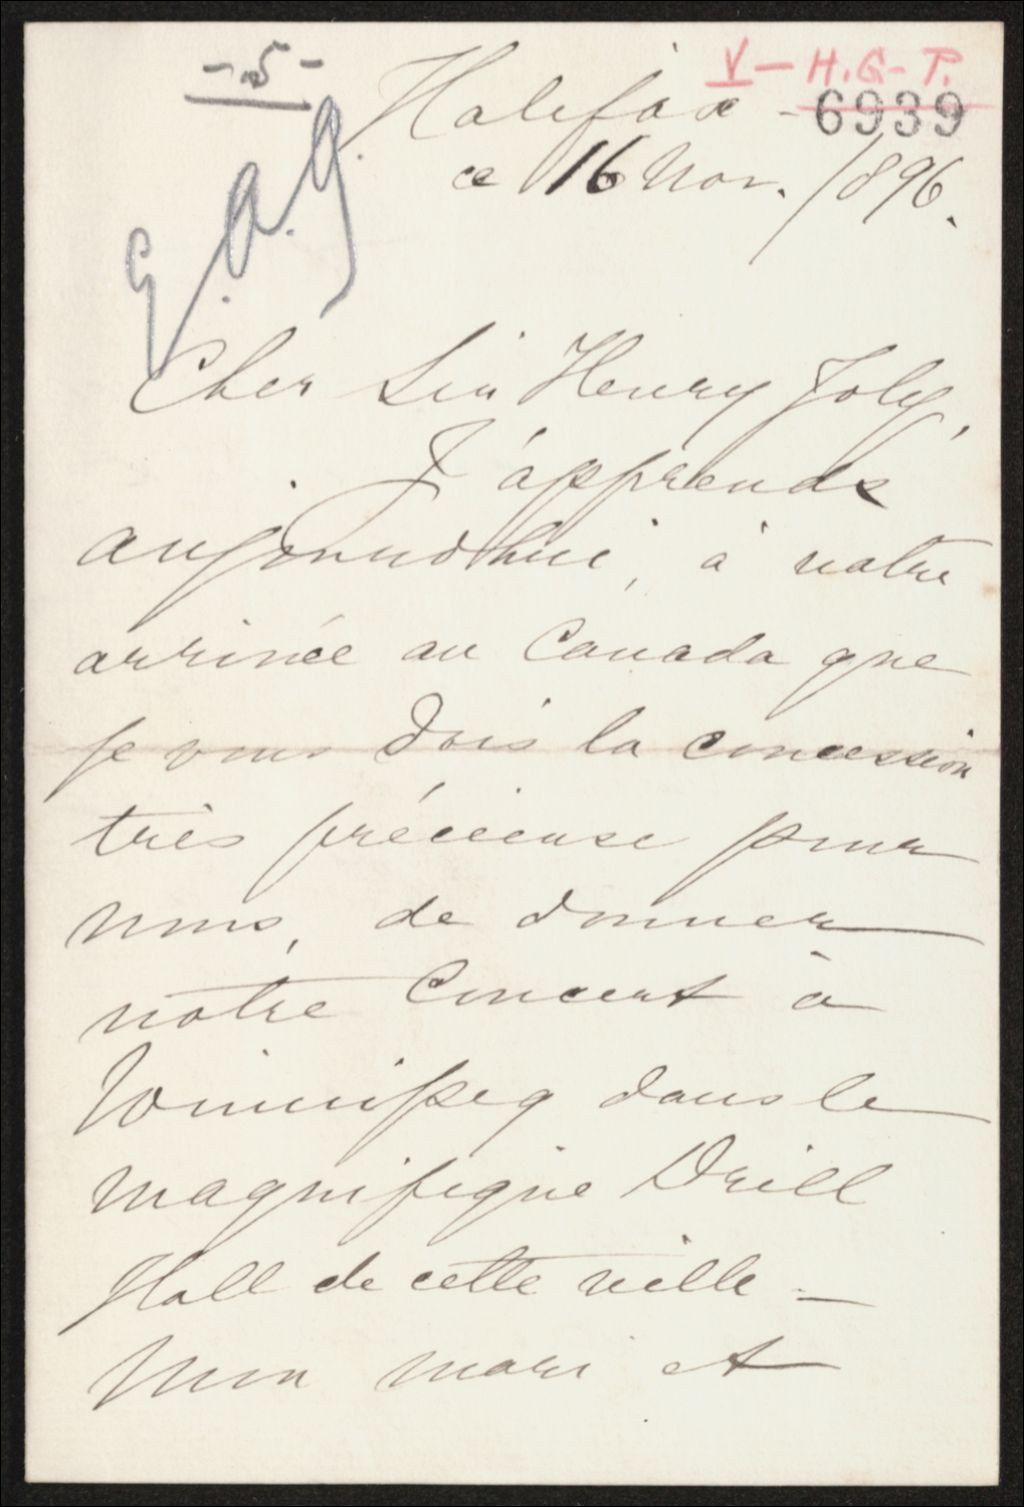 - 5 -
V - H. G - T.
6939
Halifax -
ce 16 Nov. 1896.
Cher Sir Henry Joly,
J'apprends
aujourd'hui, à notre
arrivée au Canada que
je vous dois la concession
très précieuse pour
nous, de donner
notre Concert à
Winnipeg dans le
magnifique Drill
Hall de cette ville -
Mon mari et